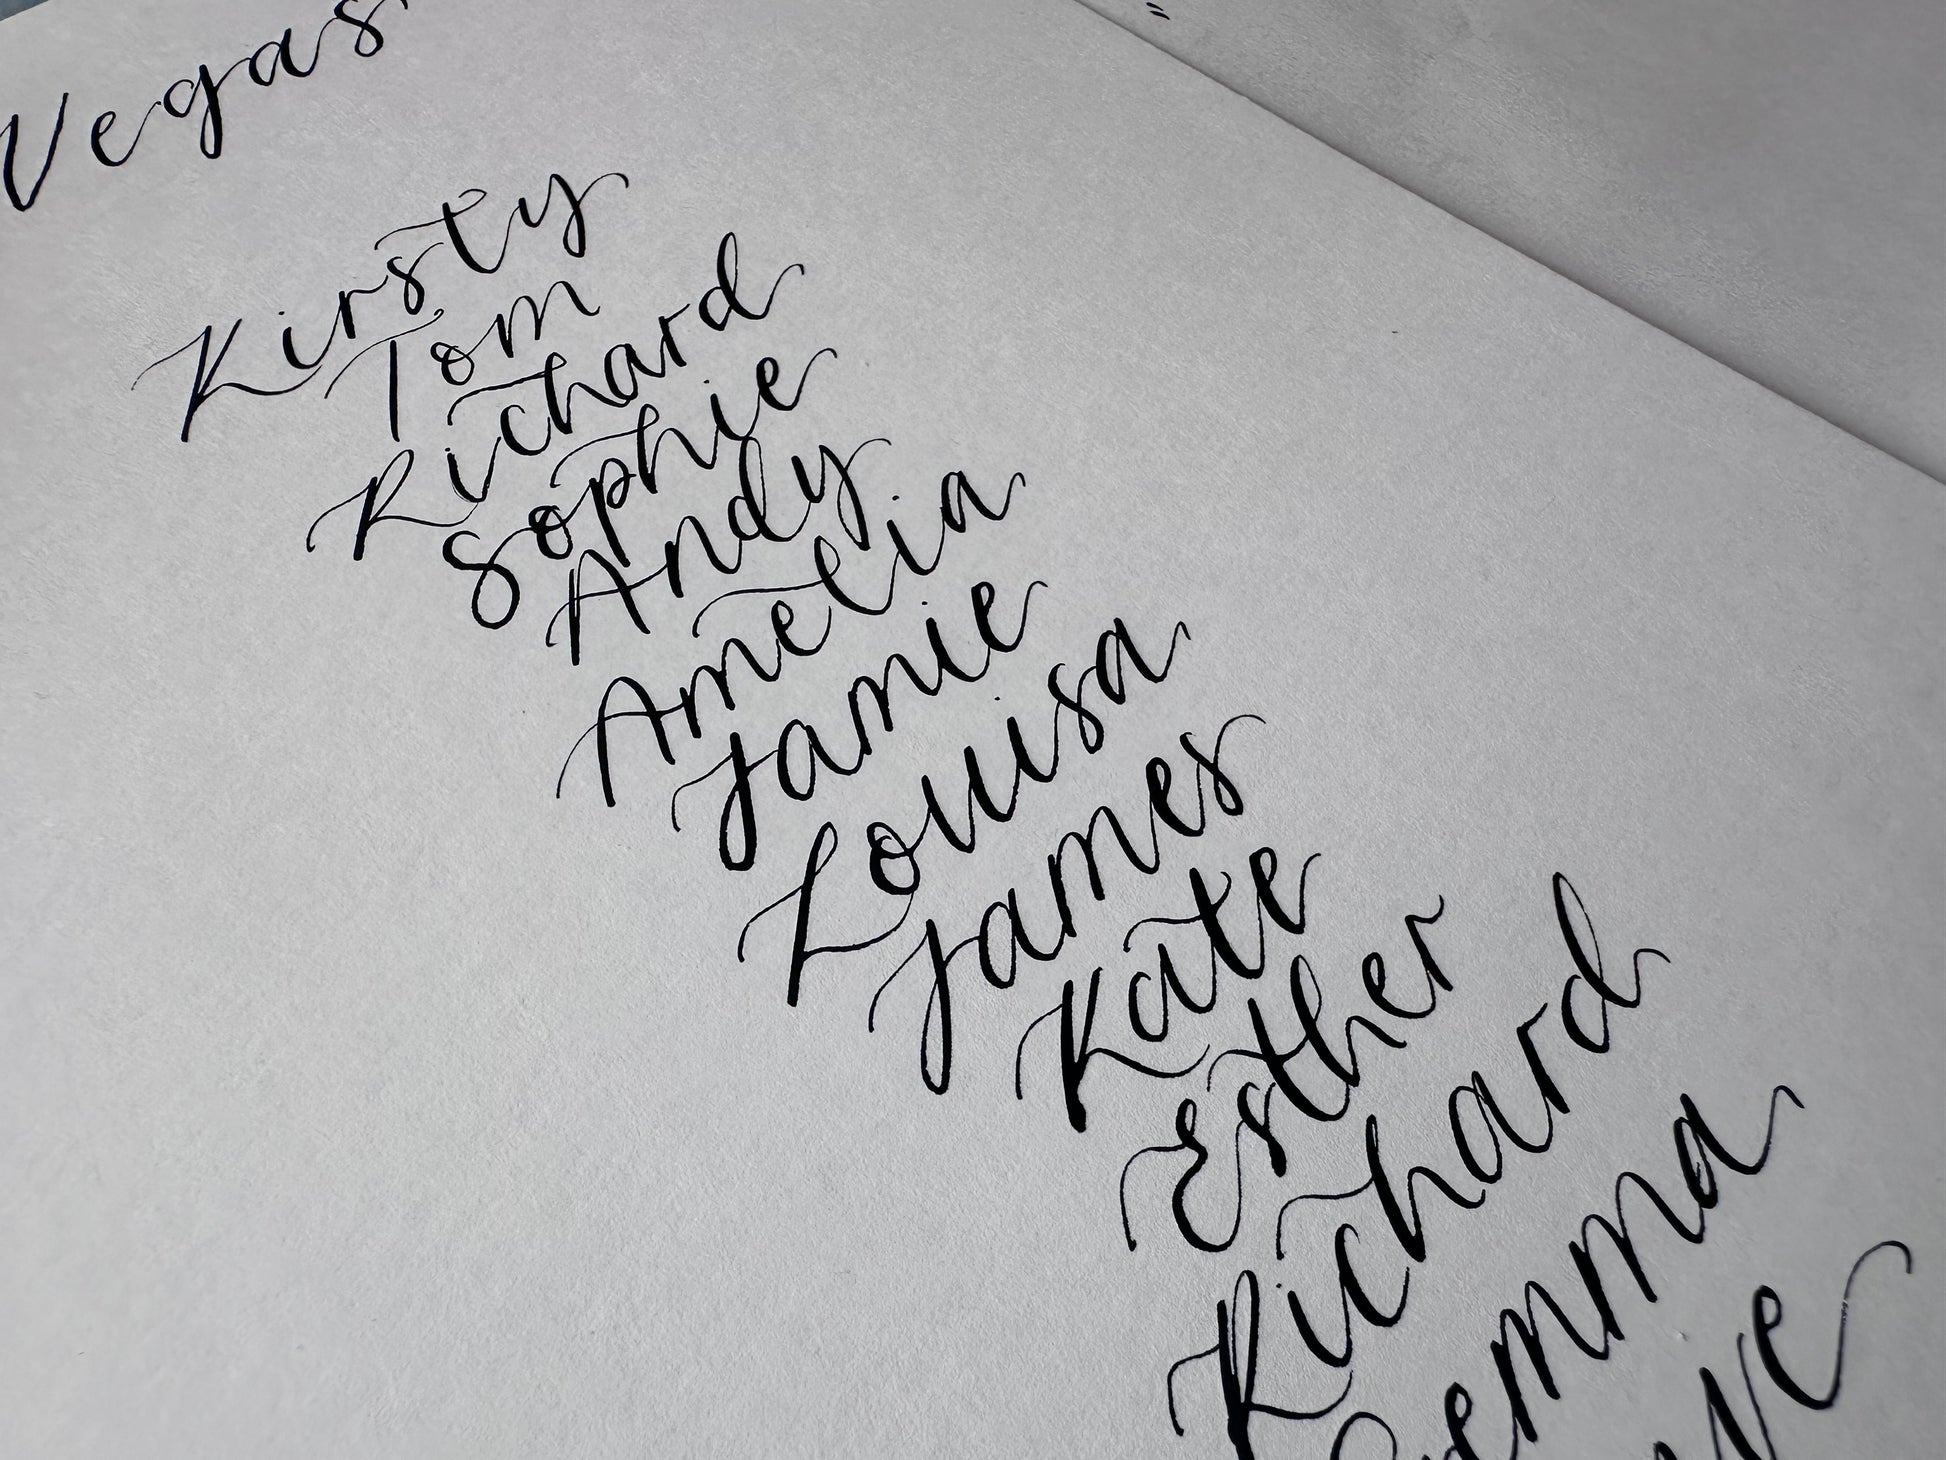 Vegas
Kirsty
Tom
Richard
Sophie
Andy
Amelia
Jamie
Louisa
James
Kate
Esther
Richard
Gemma